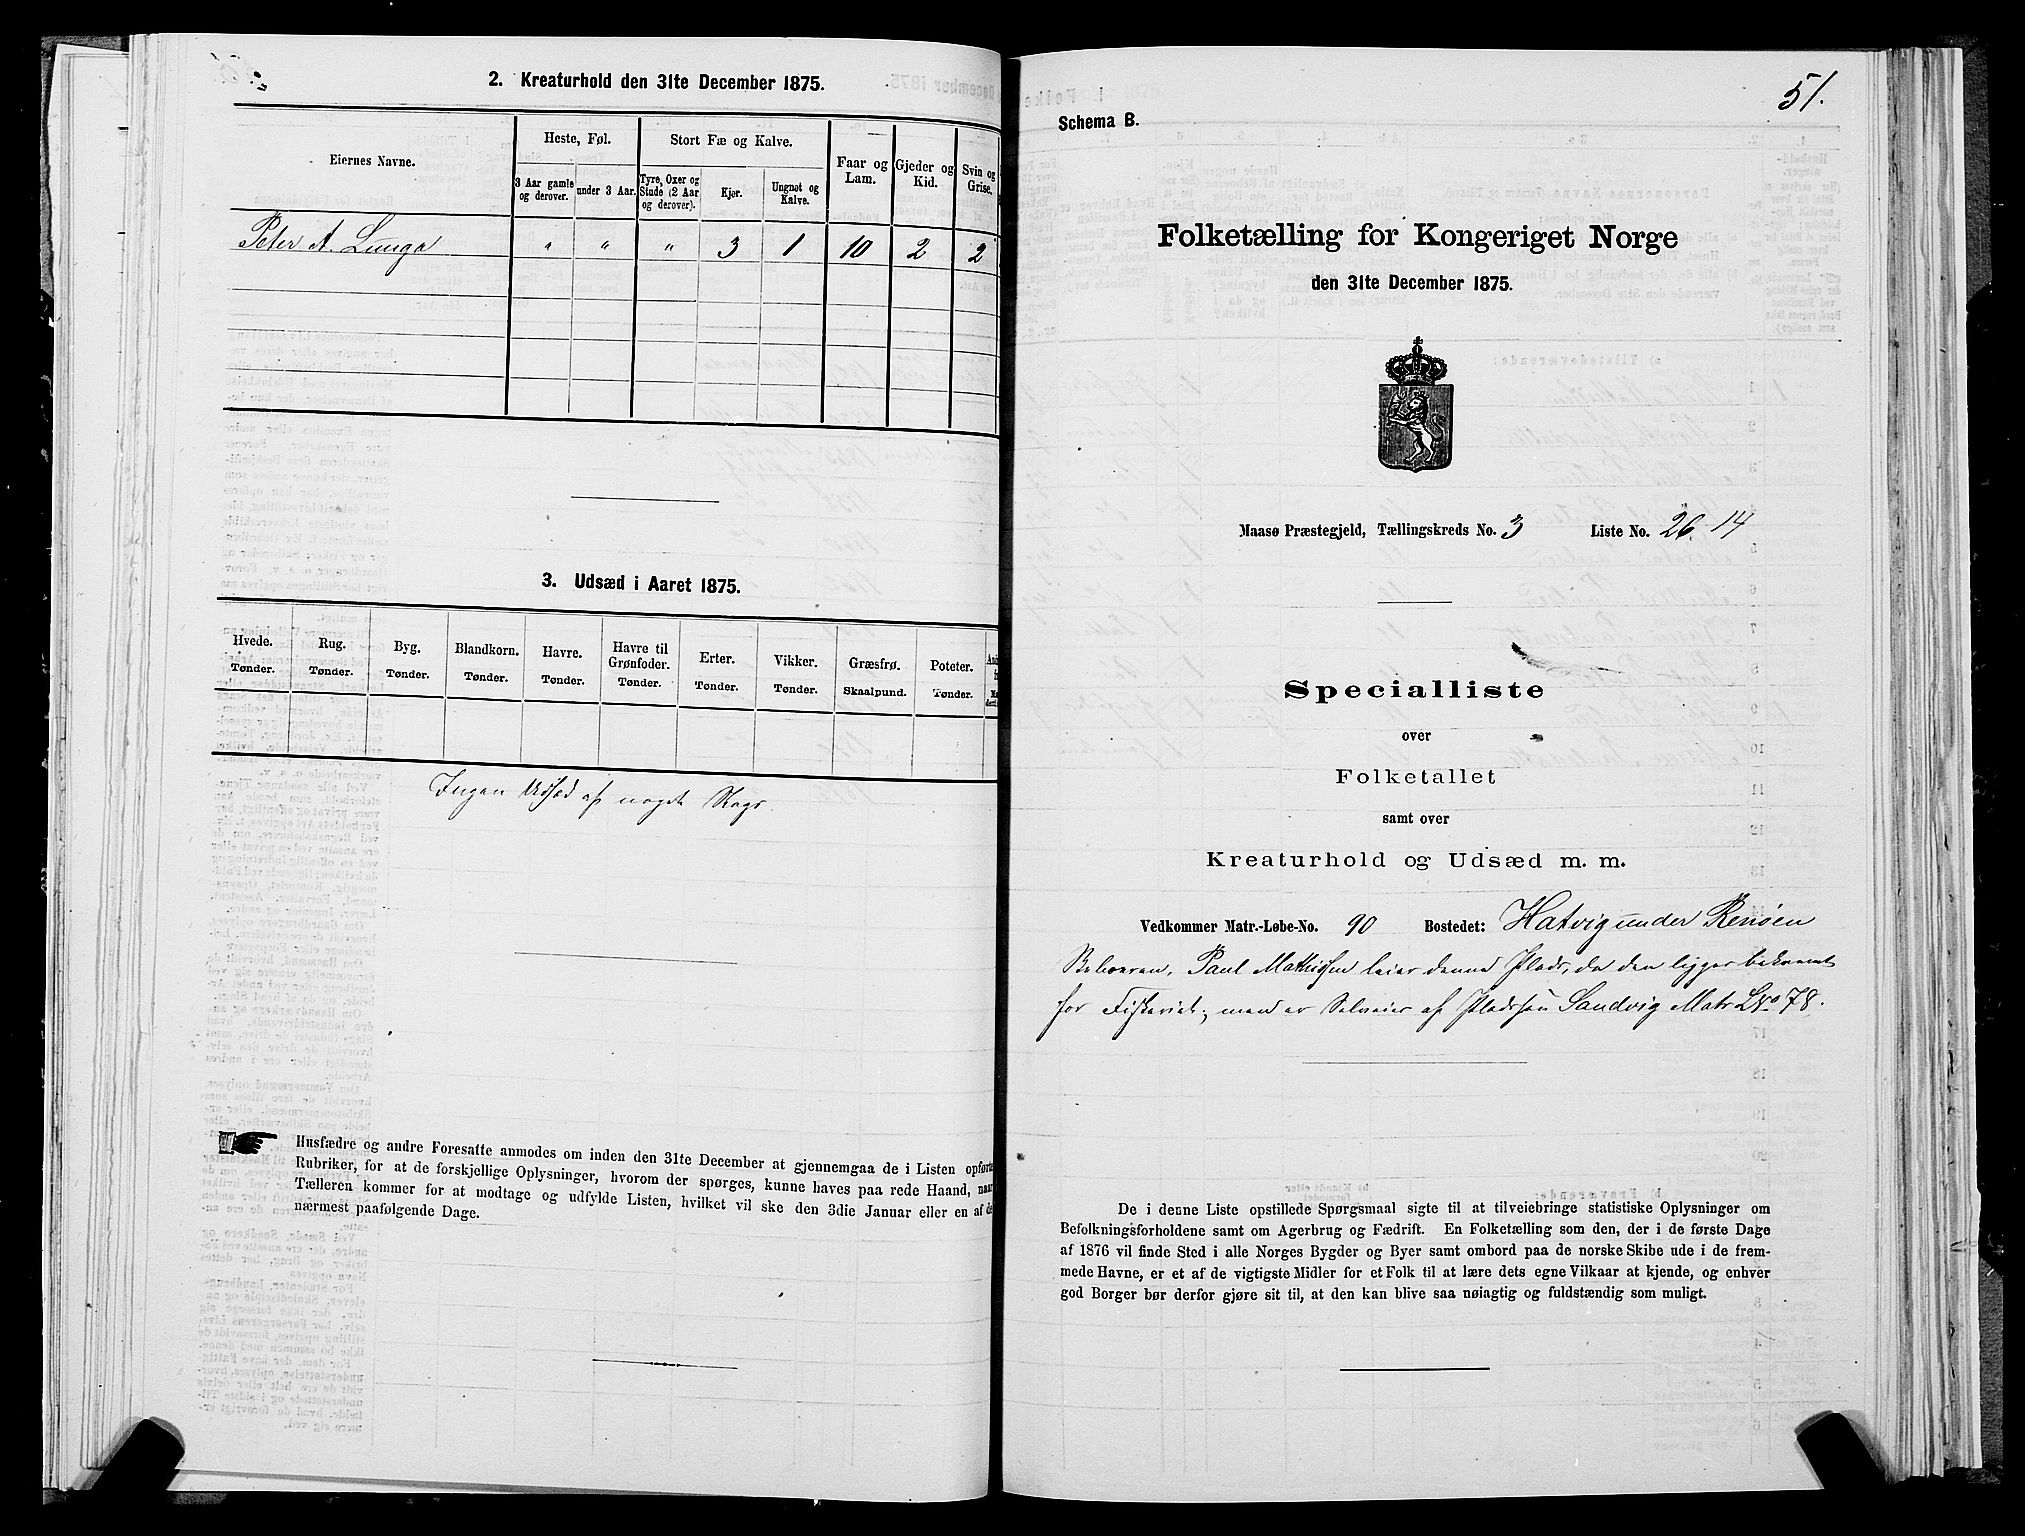 2. Kreaturhold den 31te December 1875.
Eiernes Navne.
Heste, Føl.
Stort Fæ og Kalve.
Faar og Lam.
Gjeder og Kid.
Svin og Grise.
3 Aar gamle og derover.
under 3 Aar.
Tyre, Oxer og Stude (2 Aar og derover).
Kjør.
Ungnøt og Kalve.
Peter A. " " " 3 1 10 2 2
3. Udsæd i Aaret 1875.
Hvede. Rug. Byg. Blandkorn. Havre. Havre til Grønfoder. Erter. Vikker. Græsfrø. Poteter.
Tønder. Tønder. Tønder. Tønder. Tønder. Tønder. Tønder. Tønder. Skaalpund. Tønder.
Ingen Udsæd af noget Slags.
Husfædre og andre Foresatte anmodes om inden den 31te December at gjennemgaa de i Listen opførte
Rubriker, for at de forskjellige Oplysninger, hvorom der spørges, kunne haves paa rede Haand, naar
Tælleren kommer for at modtage og udfylde Listen, hvilket vil ske den 3die Januar eller en af de
nærmest paafølgende Dage.
51.
Schema B.
Folketælling for Kongeriget Norge
den 31te December 1875.
Maasø Præstegjeld, Tællingskreds No. 3 Liste No. 26. 14
Specialliste
over
Folketallet
samt over
Kreaturhold og Udsæd m. m.
Vedkommer Matr.-Løbe-No. 90 Bostedet: Hatvig under Renøen
Beboeren, Paul Mathisen leier denne Plads, da den ligger bekvemt
for Fiskeriet; men er Selveier af Pladsen Sandvig Matr. LNo 78.
De i denne Liste opstillede Spørgsmaal sigte til at tilveiebringe statistiske Oplysninger om
Befolkningsforholdene samt om Agerbrug og Fædrift. En Folketælling som den, der i de første Dage
af 1876 vil finde Sted i alle Norges Bygder og Byer samt ombord paa de norske Skibe ude i de frem-
mede Havne, er et af de vigtigste Midler for et Folk til at lære dets egne Vilkaar at kjende, og enhver
god Borger bør derfor gjøre sit til, at den kan blive saa nøiagtig og fuldstændig som muligt.